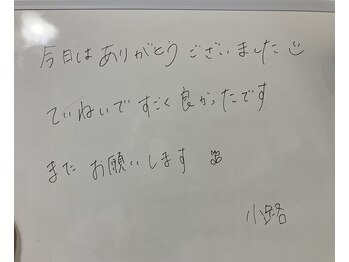 今日はありがとうございました
ていねいですごく良かったです
また お願いします
小路